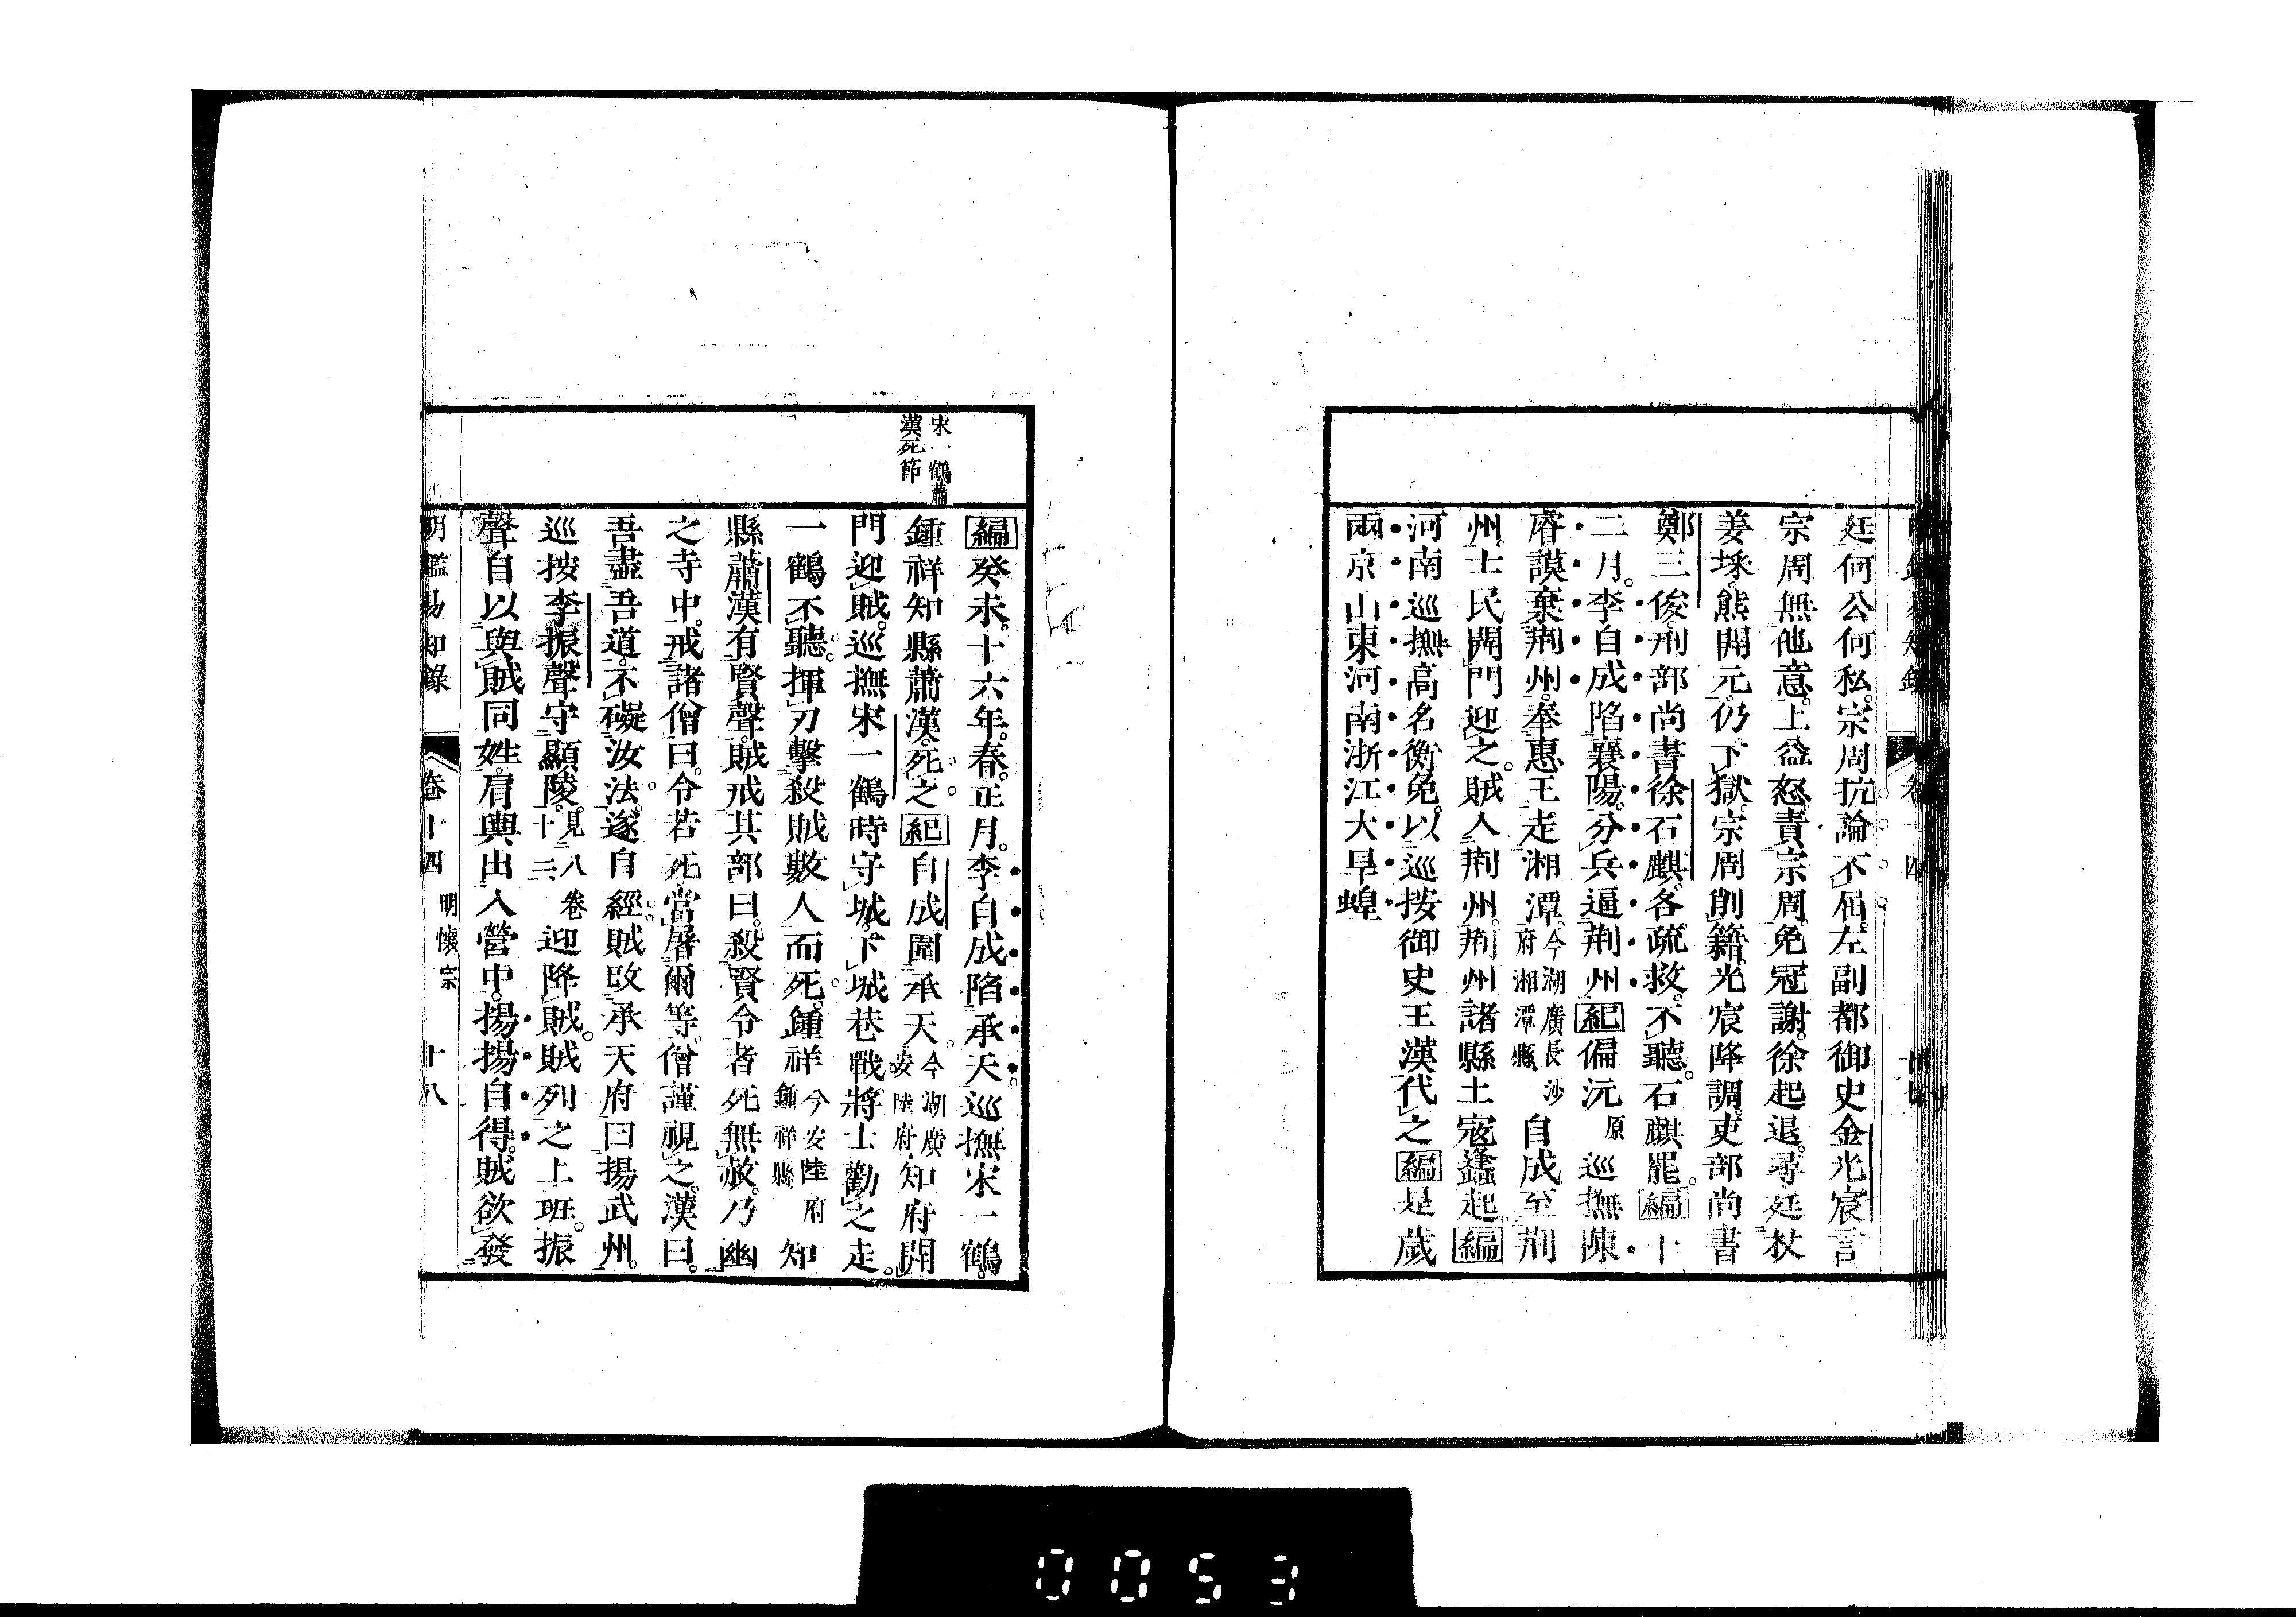 廷何公何私。宗周抗論不屈。左副都御史金光宸言
宗周無他意。上益怒。責宗周。免冠謝。徐起退。尋廷杖
姜埰。熊開元。仍下獄。宗周削籍。光宸降調。吏部尚書
鄭三俊。刑部尚書徐石麒。各疏救。不聽。石麒罷。編十
二月。李自成陷襄陽。分兵逼荆州。紀偏沅原巡撫陳
睿謨棄荆州。奉惠王走湘潭。今湖廣長沙府湘潭縣自成至荆
州。士民開門迎之。賊入荆州。荆州諸縣土寇蠭起。編
河南巡撫高名衡免。以巡按御史王漢代之。編是歲
兩京山東河南浙江大旱蝗
宋一鶴蕭
漢死節
編癸未。十六年。春。正月。李自成陷承天。巡撫宋一鶴。
鍾祥知縣蕭漢。死之。紀自成圍承天。今湖廣安陸府知府開
門迎賊。巡撫宋一鶴時守城。下城巷戰。將士勸之走。
一鶴不聽。揮刃擊殺賊數人而死。鍾祥今安陸府鍾祥縣知
縣蕭漢有賢聲。賊戒其部曰。殺賢令者死無赦。乃幽
之寺中。戒諸僧曰。令若死。當屠爾等。僧謹視之。漢曰。
吾盡吾道。不礙汝法。遂自經。賊改承天府曰揚武州。
巡按李振聲守顯陵。見八卷十二迎降賊。賊列之上班。振
聲自以與賊同姓。肩輿出入營中。揚揚自得。賊欲發
明鑑易知錄 卷十四 明懷宗 十八